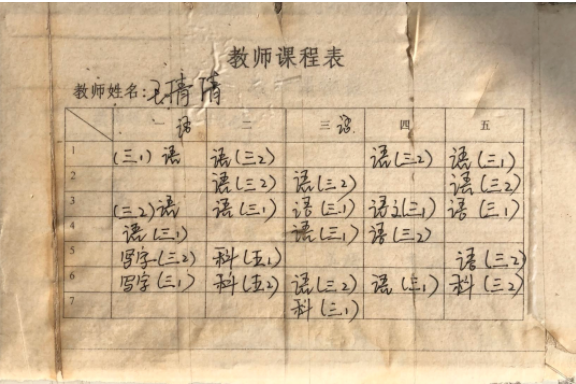 教师课程表
教师姓名:王倩倩
一 二 三 四 五
语 语
1 (三1)语 语(三2) 语(三2) 语(三1)
2 语(三2) 语(三2) 语(三2)
3 (三2)语 语(三1) 语(三1) 语文(三1) 语(三1)
4 语(三1) 语(三1) 语(三2)
5 写字(三2) 科(五1) 语(三2)
6 写字(三1) 科(五2) 语(三2) 语(三1) 科(三2)
7 科(三1)